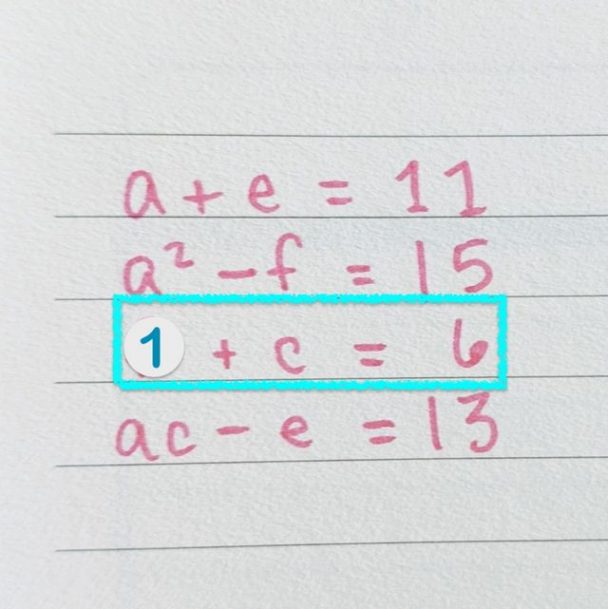 a + e = 11
a² - f = 15
1 + c = 6
ac - e = 13